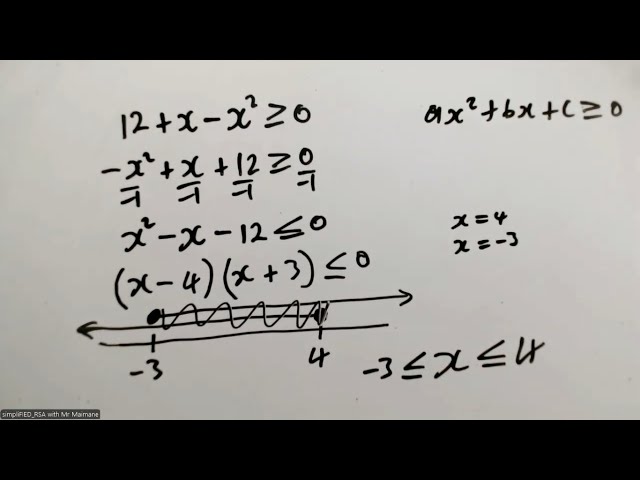 12 + x - x² ≥ 0
ax² + bx + c ≥ 0
-x²/-1 + x/-1 + 12/-1 ≥ 0/-1
x² - x - 12 ≤ 0
x = 4
x = -3
(x - 4)(x + 3) ≤ 0
-3 4
-3 ≤ x ≤ 4
simpliFIED_RSA with Mr Maimane